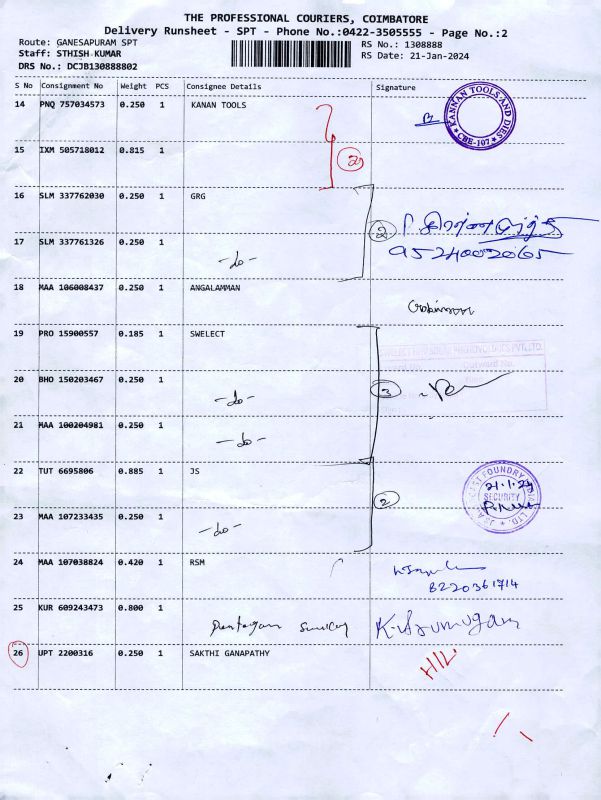 THE PROFESSIONAL COURIERS, COIMBATORE
Delivery Runsheet - SPT - Phone No.:0422-3505555 - Page No.:2
Route: GANESAPURAM SPT
Staff: STHISH KUMAR
DRS No.: DCJB130888802
RS No.: 1308888
RS Date: 21-Jan-2024
S No Consignment No Weight PCS Consignee Details Signature
14 PNQ 757034573 0.250 1 KANAN TOOLS
KANNAN TOOLS AND DIES
CBE-107
15 IXM 505718012 0.815 1
2
16 SLM 337762030 0.250 1 GRG
2
17 SLM 337761326 0.250 1
-do-
9524002065
18 MAA 106008437 0.250 1 ANGALAMMAN
19 PRO 15900557 0.185 1 SWELECT
20 BHO 150203467 0.250 1
-do-
3
21 MAA 100204981 0.250 1
-do-
22 TUT 6695806 0.885 1 JS
2
SECURITY
23 MAA 107233435 0.250 1
-do-
24 MAA 107038824 0.420 1 RSM
8220361714
25 KUR 609243473 0.800 1
K. Arumugam
26 UPT 2200316 0.250 1 SAKTHI GANAPATHY
H/L